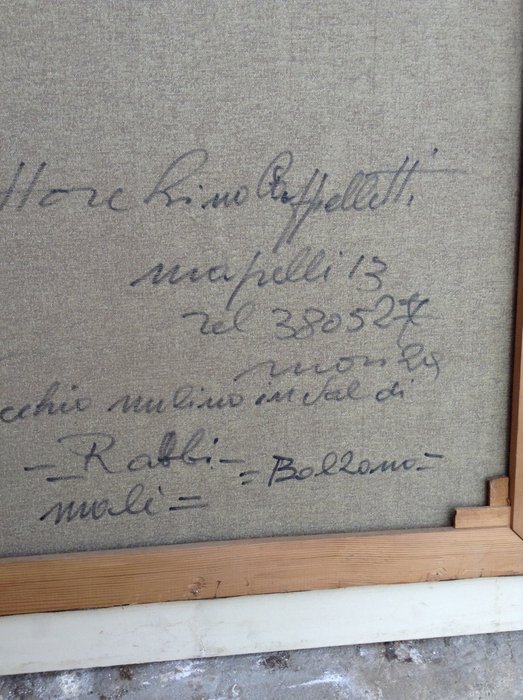 ttore Rino Cappelletti
mapelli 13
tel 380527
monza
cchio mulino in val di
- Rabbi - = Bolzano =
mali =